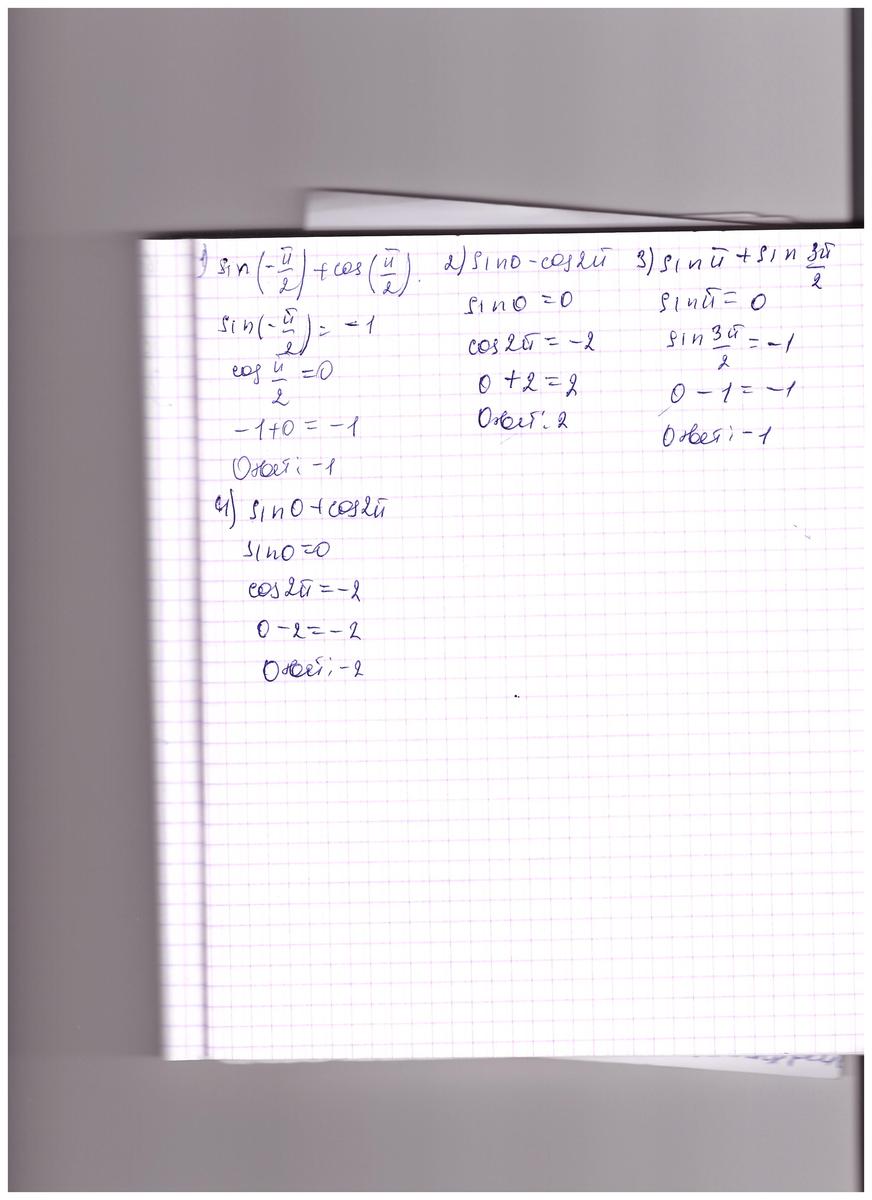 1) sin(-π/2) + cos(π/2).
sin(-π/2) = -1
cos π/2 = 0
-1+0 = -1
Ответ: -1
2) sin0 - cos2π
sin0 = 0
cos2π = -2
0 + 2 = 2
Ответ: 2
3) sinπ + sin 3π/2
sinπ = 0
sin 3π/2 = -1
0 - 1 = -1
Ответ: -1
4) sin0 + cos2π
sin0 = 0
cos2π = -2
0 - 2 = -2
Ответ: -2